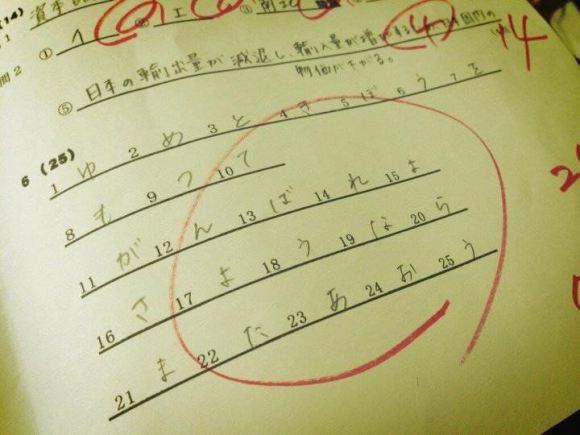 (14) 資本
1 ① イ ② エ ③
問2
⑤ 日本の輸出量が減退し、輸入量が増加する
物価が下がる。
4
14
6 (25)
1 ゆ 2 め 3 と 4 き 5 ぼ 6 う 7 を
8 も 9 つ 10 て
11 が 12 ん 13 ば 14 れ 15 よ
16 さ 17 よ 18 う 19 な 20 ら
21 ま 22 た 23 あ 24 お 25 う